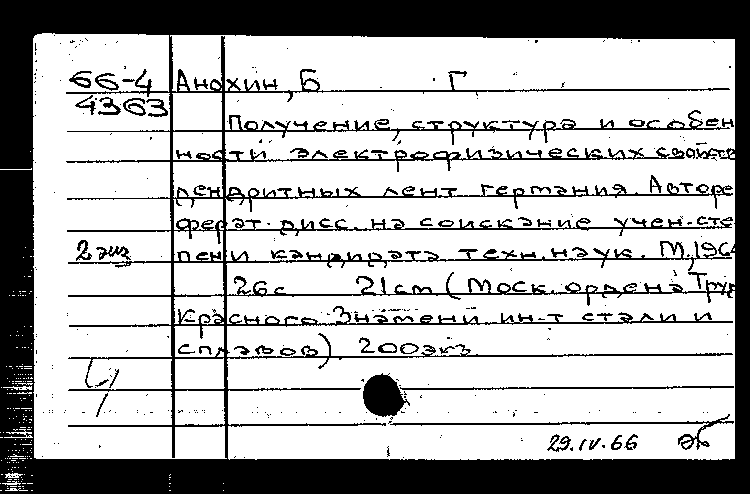 66-4 Анохин, Б Г
4363
Получение, структура и особен
ности электрофизических свойств
дендритных лент германия. Авторе
ферат дисс. на соискание учен. сте
2 экз пени кандидата техн. наук. М, 196
26с 21 cm (Моск. ордена Труд
Красного Знамени ин-т стали и
сплавов). 200экз
29.IV.66